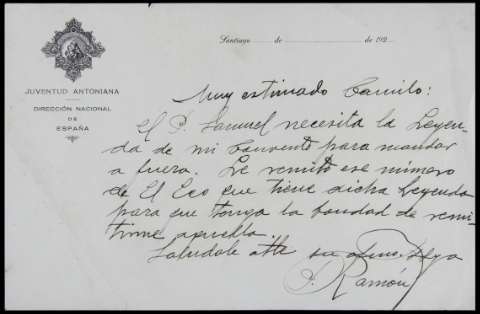 JUVENTUD ANTONIANA
DIRECCIÓN NACIONAL
DE
ESPAÑA
Santiago de de 192
Muy estimado Camilo:
El P. Samuel necesita la Leyen-
da de mi convento para mandar
a fuera. Le remito ese número
de El Eco que tiene dicha Leyenda
para que tenga la bondad de remi-
tirme aquella.
Salúdale atte su afmo.
P. Ramón